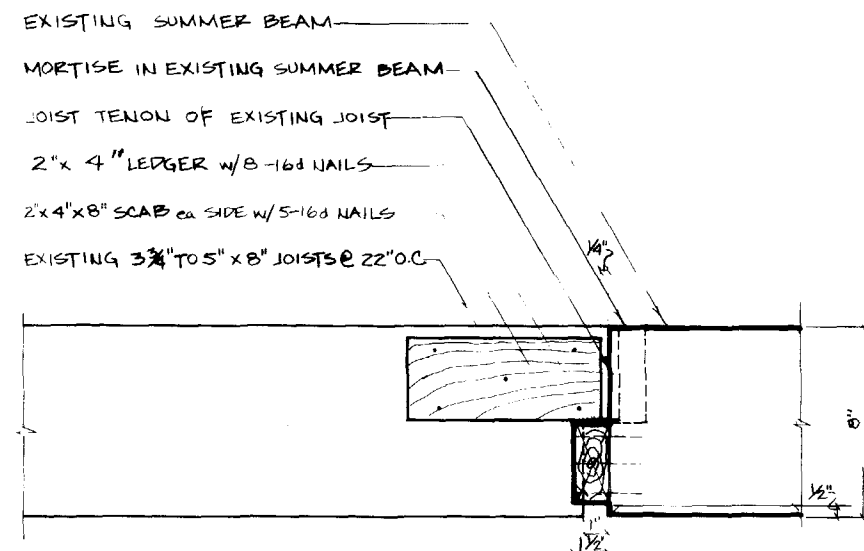 EXISTING SUMMER BEAM
MORTISE IN EXISTING SUMMER BEAM
JOIST TENON OF EXISTING JOIST
2"x 4" LEDGER w/8-16d NAILS
2"x4"x8" SCAB ea SIDE w/5-16d NAILS
EXISTING 3¾" TO 5" x 8" JOISTS @ 22" O.C.
¼"
8"
½"
1"
1½"